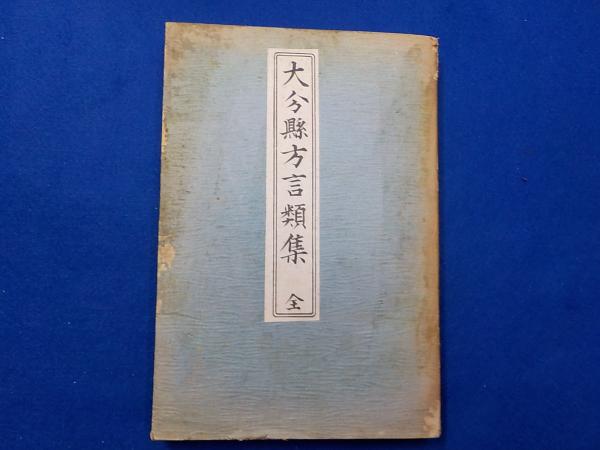 大分縣方言類集 全